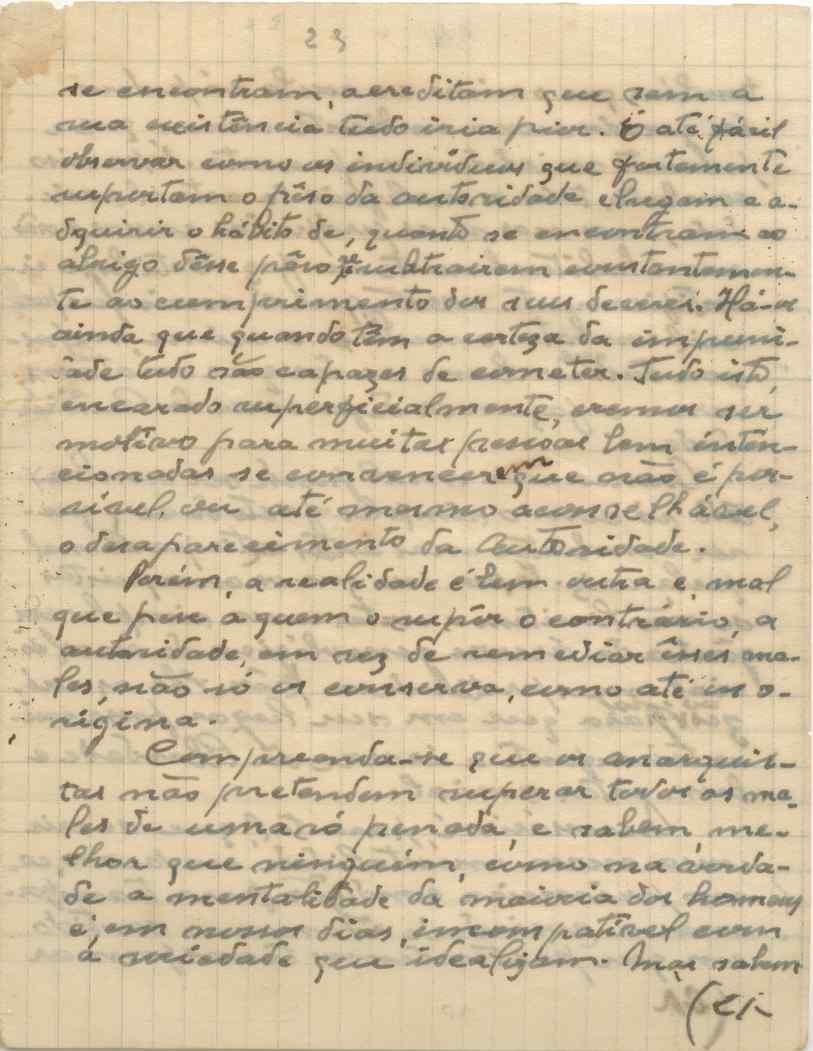 23
se encontram, acreditam que sem a
sua existência tudo iria pior. É até fácil
observar como os indivíduos que fortemente
suportam o pêso da autoridade chegam a a-
dquirir o hábito de, quando se encontram ao
abrigo dêsse pêso se subtrairem constantemen-
te ao cumprimento dos seus deveres. Há-os
ainda que quando têm a certeza da impuni-
dade tudo são capazes de cometer. Tudo isto,
encarado superficialmente, cremos ser
motivo para muitas pessoas bem inten-
cionadas se convencerem que não é pos-
sível, ou até mesmo aconselhável,
o desaparecimento da Autoridade.
Porém, a realidade é bem outra e, mal
que pese a quem o supôr o contrário, a
autoridade, em vez de remediar êsses ma-
les, não só os conserva, como até os o-
rigina.
Compreenda-se que os anarquis-
tas não pretendem superar todos os ma-
les de uma só penada, e sabem, me-
lhor que ninguém, como na verda-
de a mentalidade da maioria dos homens
é, em nossos dias, incompatível com
a sociedade que idealizam. Mas sabem